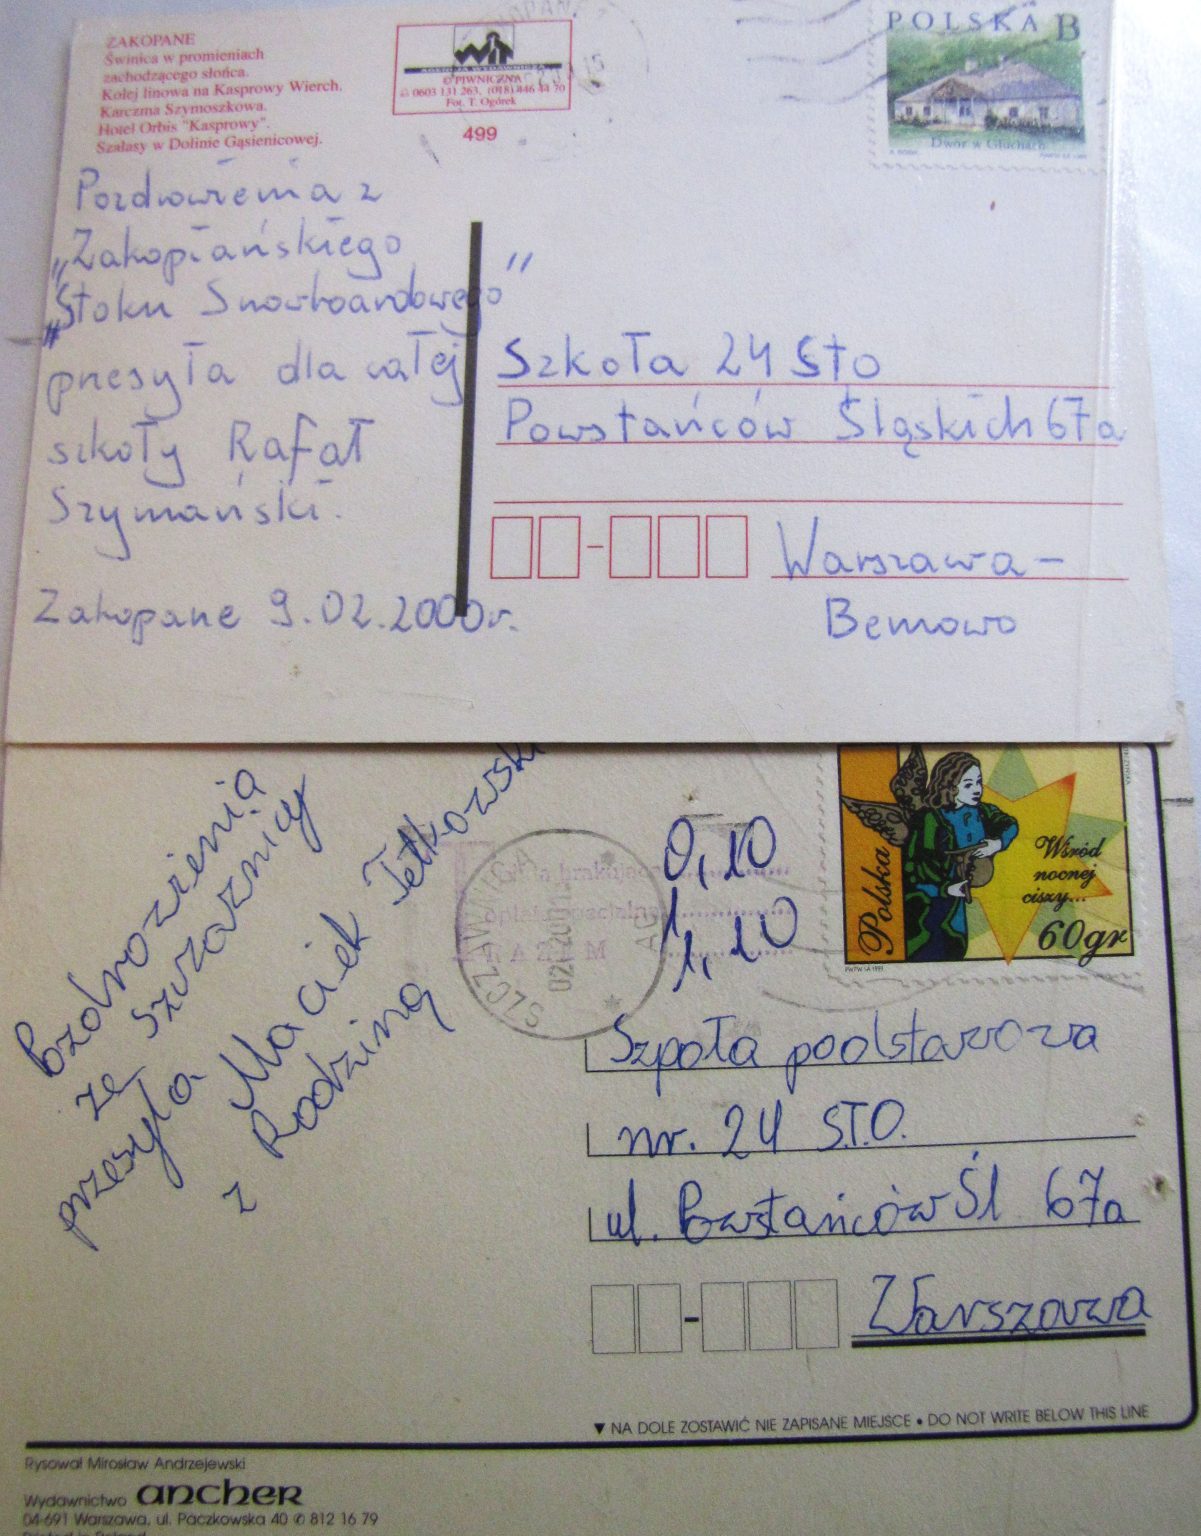 ZAKOPANE
Świnica w promieniach
zachodzącego słońca.
Kolej linowa na Kasprowy Wierch.
Karczma Szymoszkowa.
Hotel Orbis "Kasprowy".
Szałasy w Dolinie Gąsienicowej.
WiT
AGENCJA WYDAWNICZA
© PIWNICZNA
☎ 0603 131 263, (018) 446 44 70
Fot. T. Ogórek
499
POLSKA B
Dwór w Głuchach
Pozdrowienia z
„Zakopiańskiego
„Stoku Snowboardowego”
przesyła dla całej
szkoły Rafał
Szymański.
Zakopane 9.02.2000r.
Szkoła 24 Sto
Powstańców Śląskich 67a
Warszawa-
Bemowo
Pozdrozienia
ze Szczaznicy
przesyla Maciek Tetkowski
z Rodziną
SZCZAWNICA
0,10
1,10
Polska
Wśród
nocnej
ciszy...
60gr
Szpoła podstawowa
nr. 24 S.T.O.
ul. Powstańców Śl 67a
Warszawa
▼ NA DOLE ZOSTAWIĆ NIE ZAPISANE MIEJSCE • DO NOT WRITE BELOW THIS LINE
Rysował Mirosław Andrzejewski
Wydawnictwo ancher
04-691 Warszawa, ul. Paczkowska 40 ✆ 812 16 79
Printed in Poland